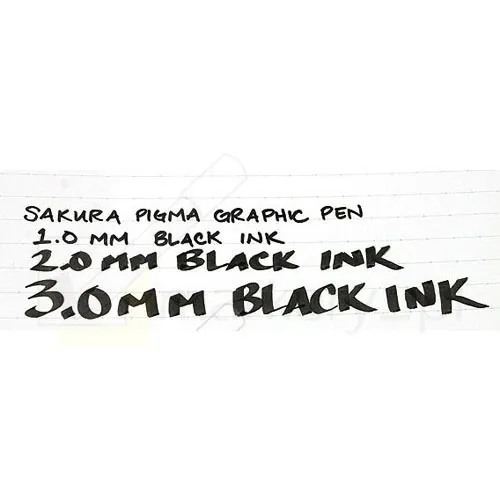 SAKURA PIGMA GRAPHIC PEN
1.0 MM BLACK INK
2.0 MM BLACK INK
3.0 MM BLACK INK